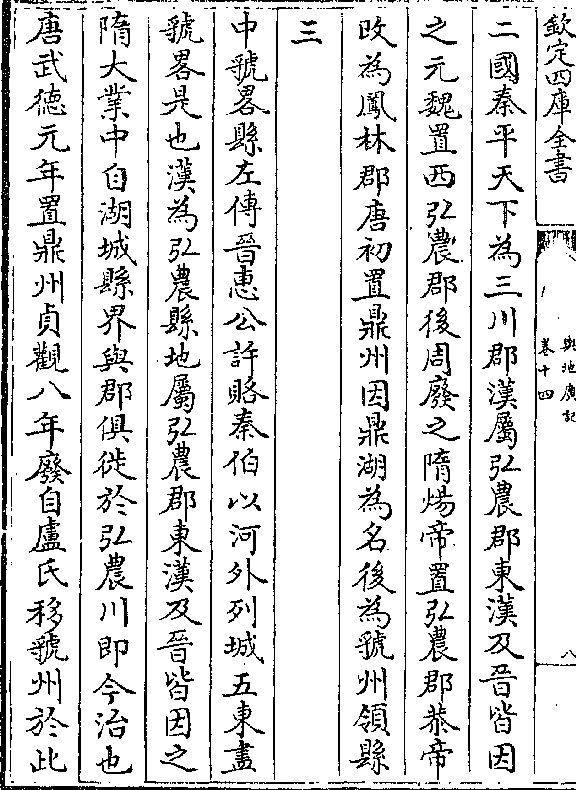 欽定四庫全書
輿地廣記
卷十四
八
二國秦平天下為三川郡漢屬弘農郡東漢及晉皆因
之元魏置西弘農郡後周廢之隋煬帝置弘農郡恭帝
改為鳳林郡唐初置鼎州因鼎湖為名後為虢州領縣
三
中虢畧縣左傳晉惠公許賂秦伯以河外列城五東盡
虢畧是也漢為弘農縣地屬弘農郡東漢及晉皆因之
隋大業中自湖城縣界與郡俱徙於弘農川即今治也
唐武德元年置鼎州貞觀八年廢自盧氏移虢州於此